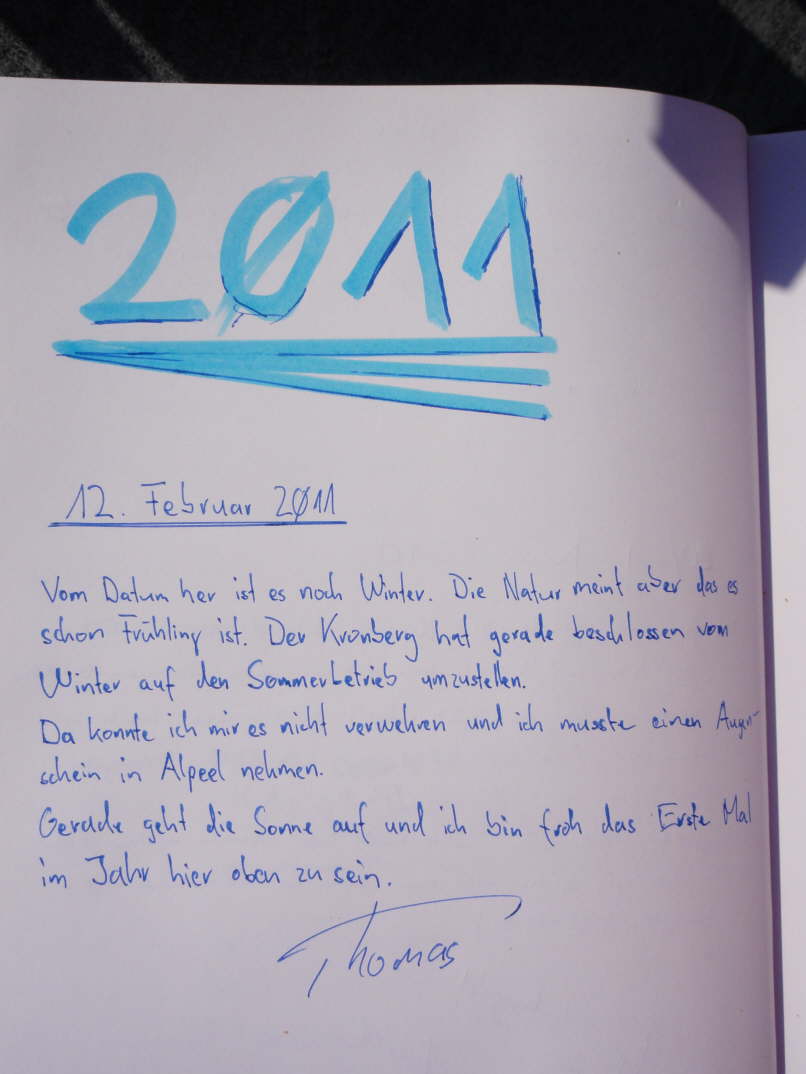 2011
12. Februar 2011
Vom Datum her ist es noch Winter. Die Natur meint aber das es
schon Frühling ist. Der Kronberg hat gerade beschlossen vom
Winter auf den Sommerbetrieb umzustellen.
Da konnte ich mir es nicht verwehren und ich musste einen Augen-
schein in Alpeel nehmen.
Gerade geht die Sonne auf und ich bin froh das Erste Mal
im Jahr hier oben zu sein.
Thomas